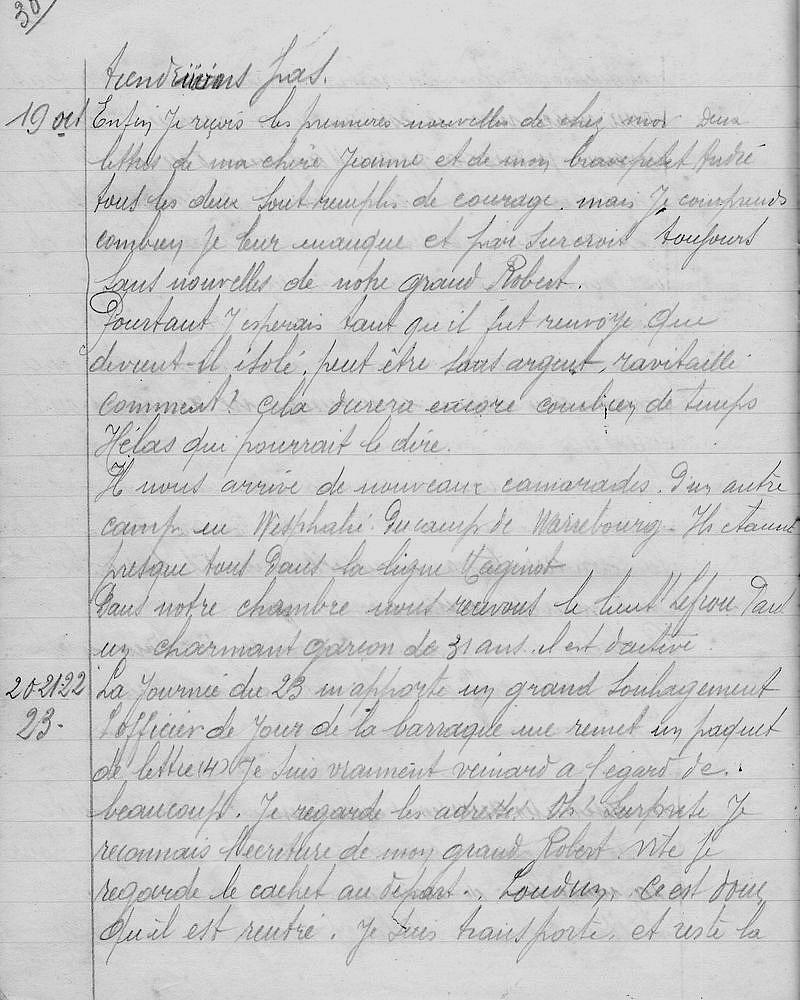 30/
tiendrions pas.
19 oct Enfin Je reçois les premieres nouvelles de chez moi Deux
lettres de ma chère Jeanne et de mon brave petit André
tous les deux sont remplis de courage. mais Je comprends
combien Je leur manque et par surcroit toujours
sans nouvelles de notre grand Robert.
Pourtant J'esperais tant qu'il fut renvoyé Que
devient-il isolé, peut être sans argent, ravitaillé
comment? Cela durera encore combien de temps
Hélas qui pourrait le dire.
Il nous arrive de nouveaux camarades. D'un autre
camp en Westphalie. Du camp de Warrebourg - Ils etaient
presque tous Dans la ligne Maginot
Dans notre chambre nous recevons le lieut Paul
un charmant garcon de 31 ans. il est d'active.
20.21.22 La Journée du 23 m'apporte un grand soulagement
23. L'officier de Jour de la barraque me remet un paquet
de lettre (4) Je suis vraiment veinard a l'égard de.
beaucoup. Je regarde les adresses. Oh! Surprise Je
reconnais l'ecriture de mon grand Robert. Vite Je
regarde le cachet au départ.. Loudun. Ce est donc
Qu'il est rentré. Je suis transporté. et reste la